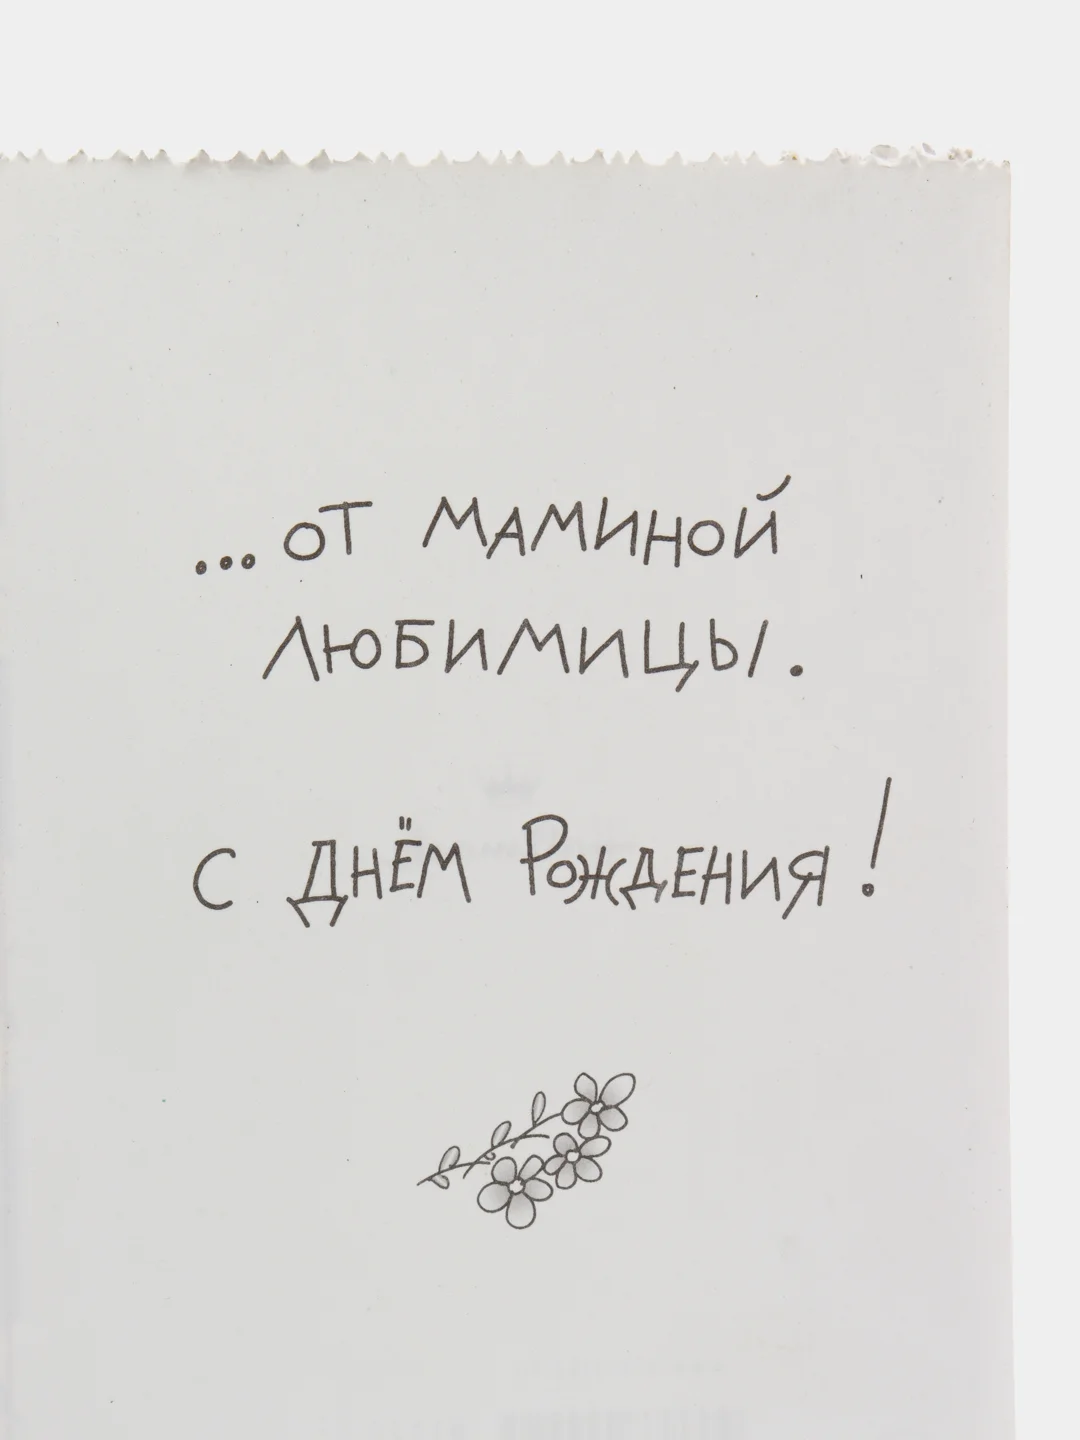 ...от маминой
любимицы.
с днём Рождения!